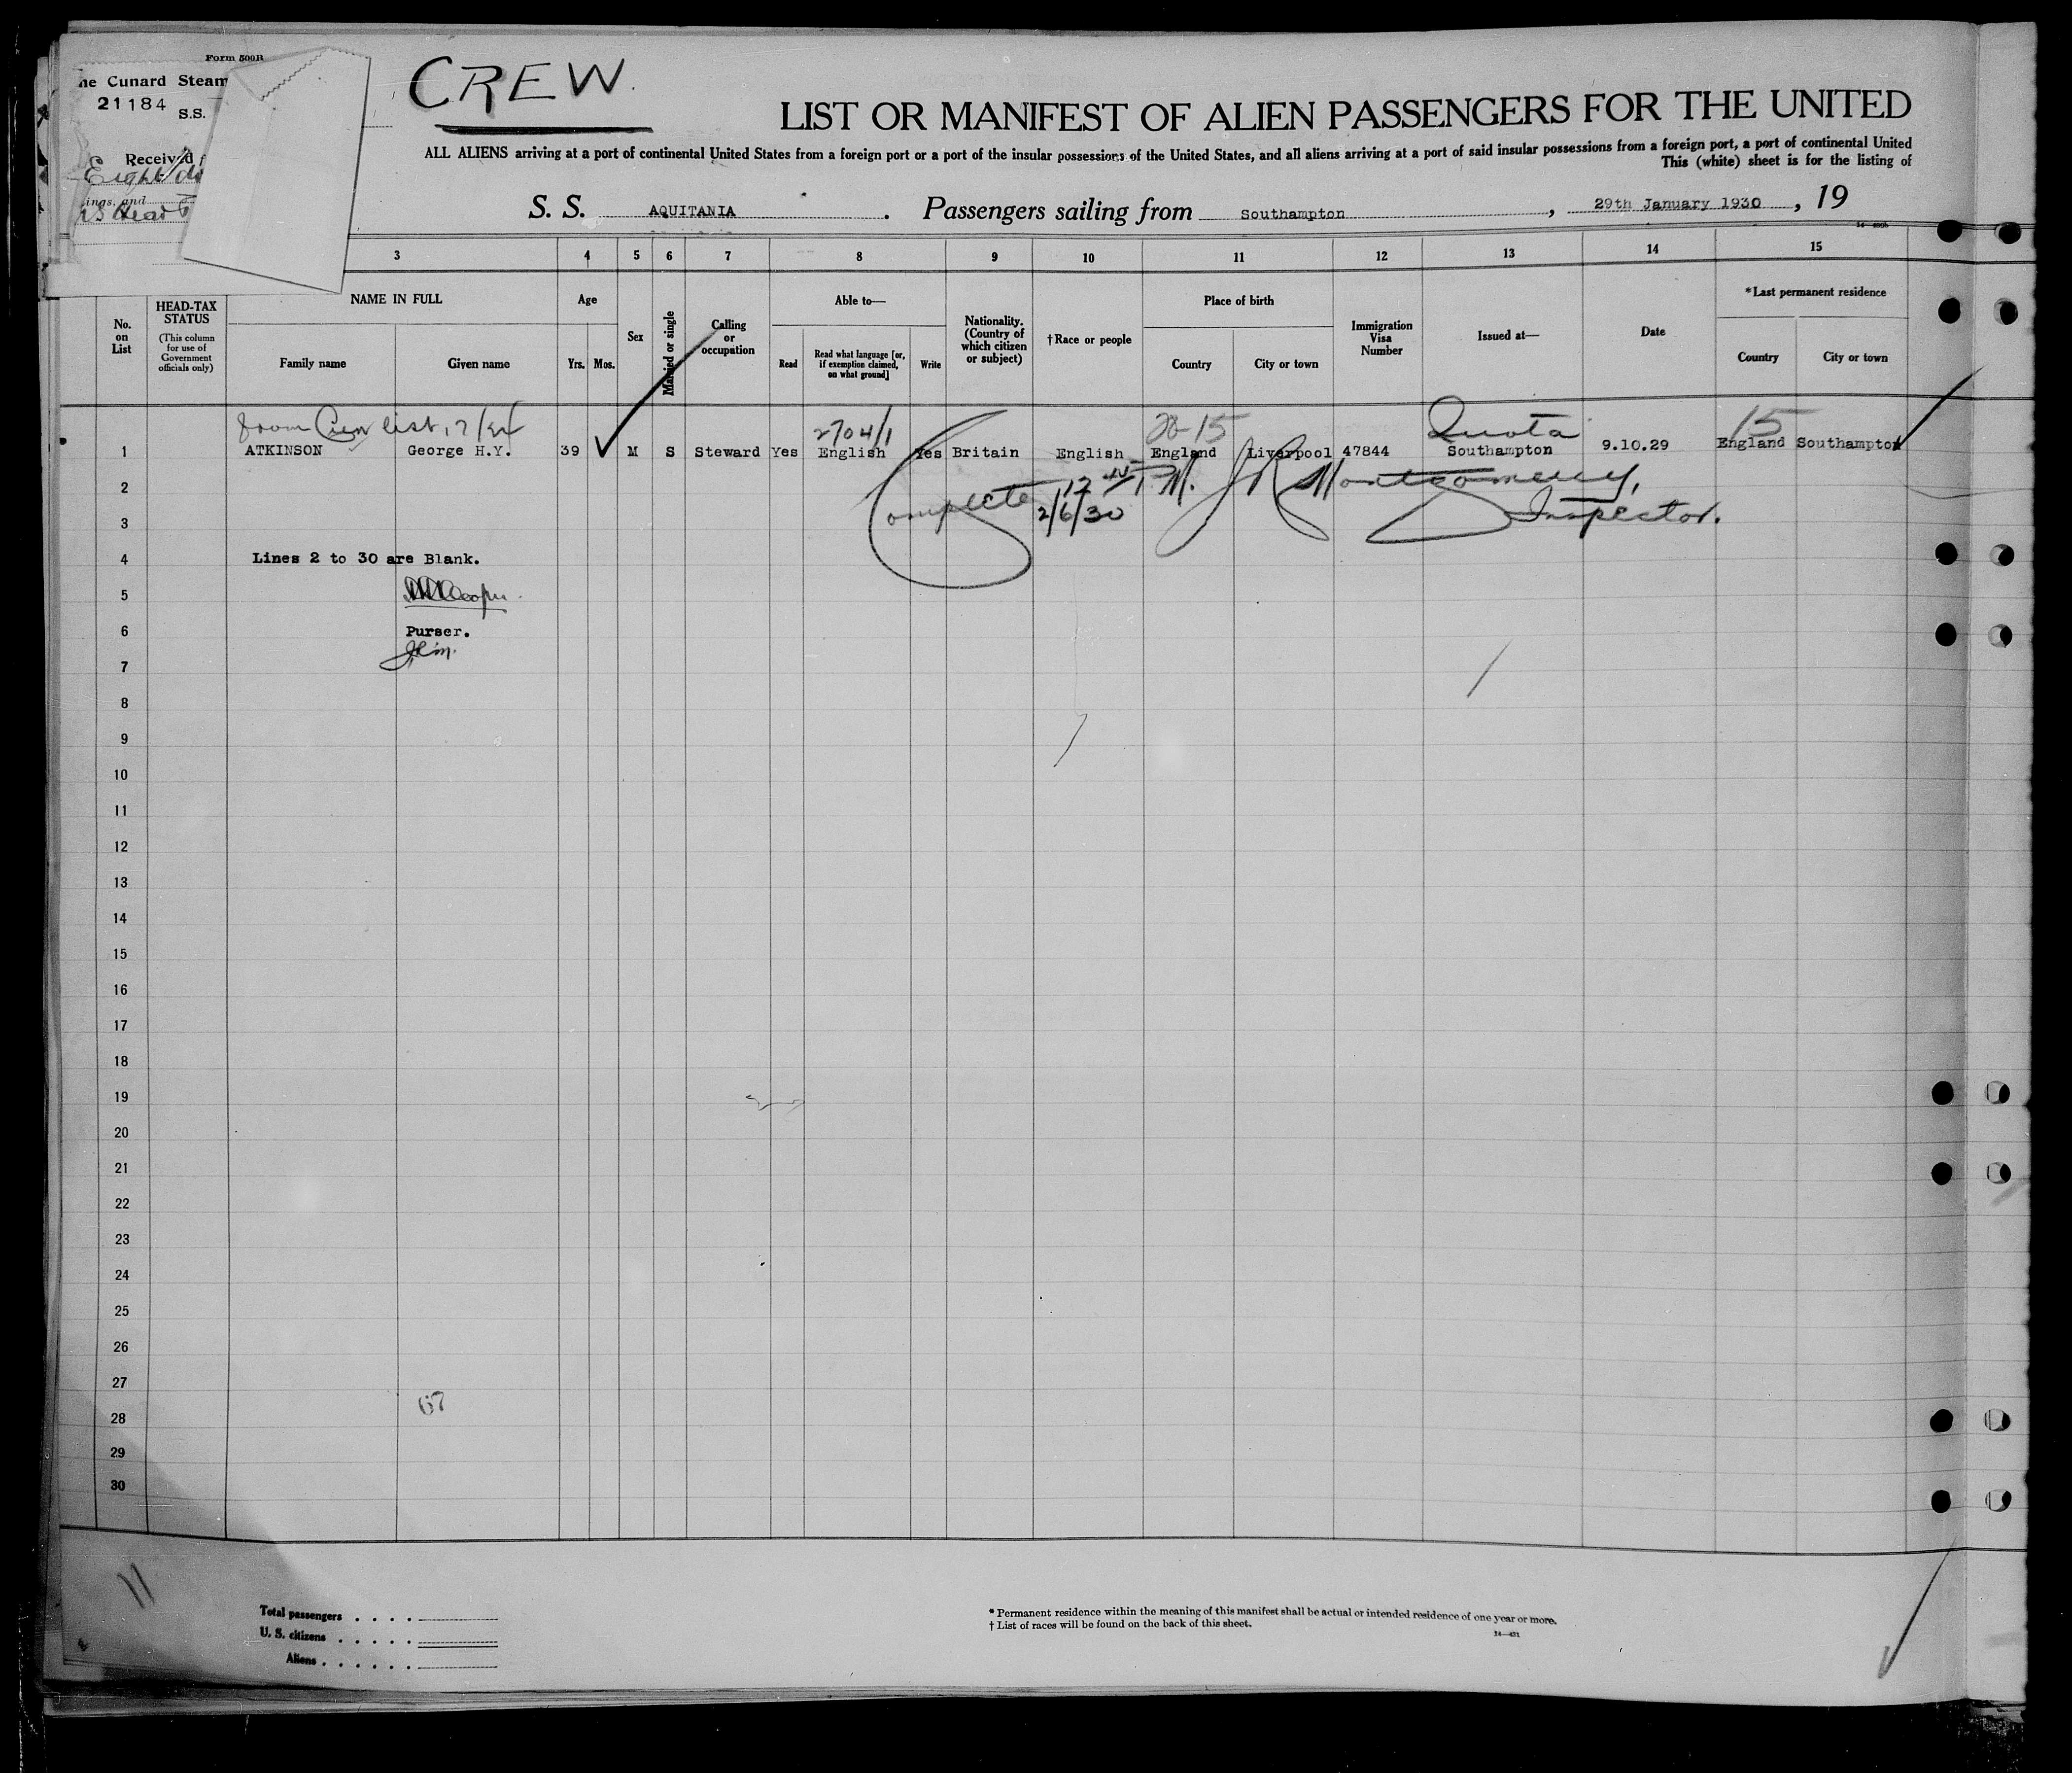 Form 500B
he Cunard Steam
21184 S.S.
Received f
Eight
ings, and
Head T
CREW.
LIST OR MANIFEST OF ALIEN PASSENGERS FOR THE UNITED
ALL ALIENS arriving at a port of continental United States from a foreign port or a port of the insular possessions of the United States, and all aliens arriving at a port of said insular possessions from a foreign port, a port of continental United
This (white) sheet is for the listing of
S. S. AQUITANIA . Passengers sailing from Southampton , 29th January 1930 , 19
3 4 5 6 7 8 9 10 11 12 13 14 15
No. on List
HEAD-TAX STATUS
(This column for use of Government officials only)
NAME IN FULL
Family name Given name
Age
Yrs. Mos.
Sex
Married or single
Calling or occupation
Able to—
Read
Read what language [or, if exemption claimed, on what ground]
Write
Nationality. (Country of which citizen or subject)
†Race or people
Place of birth
Country City or town
Immigration Visa Number
Issued at—
Date
*Last permanent residence
Country City or town
from list, 2704/1 Quota 15
1 ATKINSON George H.Y. 39 M S Steward Yes English Yes Britain English England Liverpool 47844 Southampton 9.10.29 England Southampton
2 Complete 12 P.M. J R Montgomery,
3 2/6/30 Inspector.
4 Lines 2 to 30 are Blank.
5
6 Purser.
7
8
9
10
11
12
13
14
15
16
17
18
19
20
21
22
23
24
25
26
27
67
28
29
30
11
Total passengers . . . .
U. S. citizens . . . . .
Aliens . . . . . .
* Permanent residence within the meaning of this manifest shall be actual or intended residence of one year or more.
† List of races will be found on the back of this sheet.